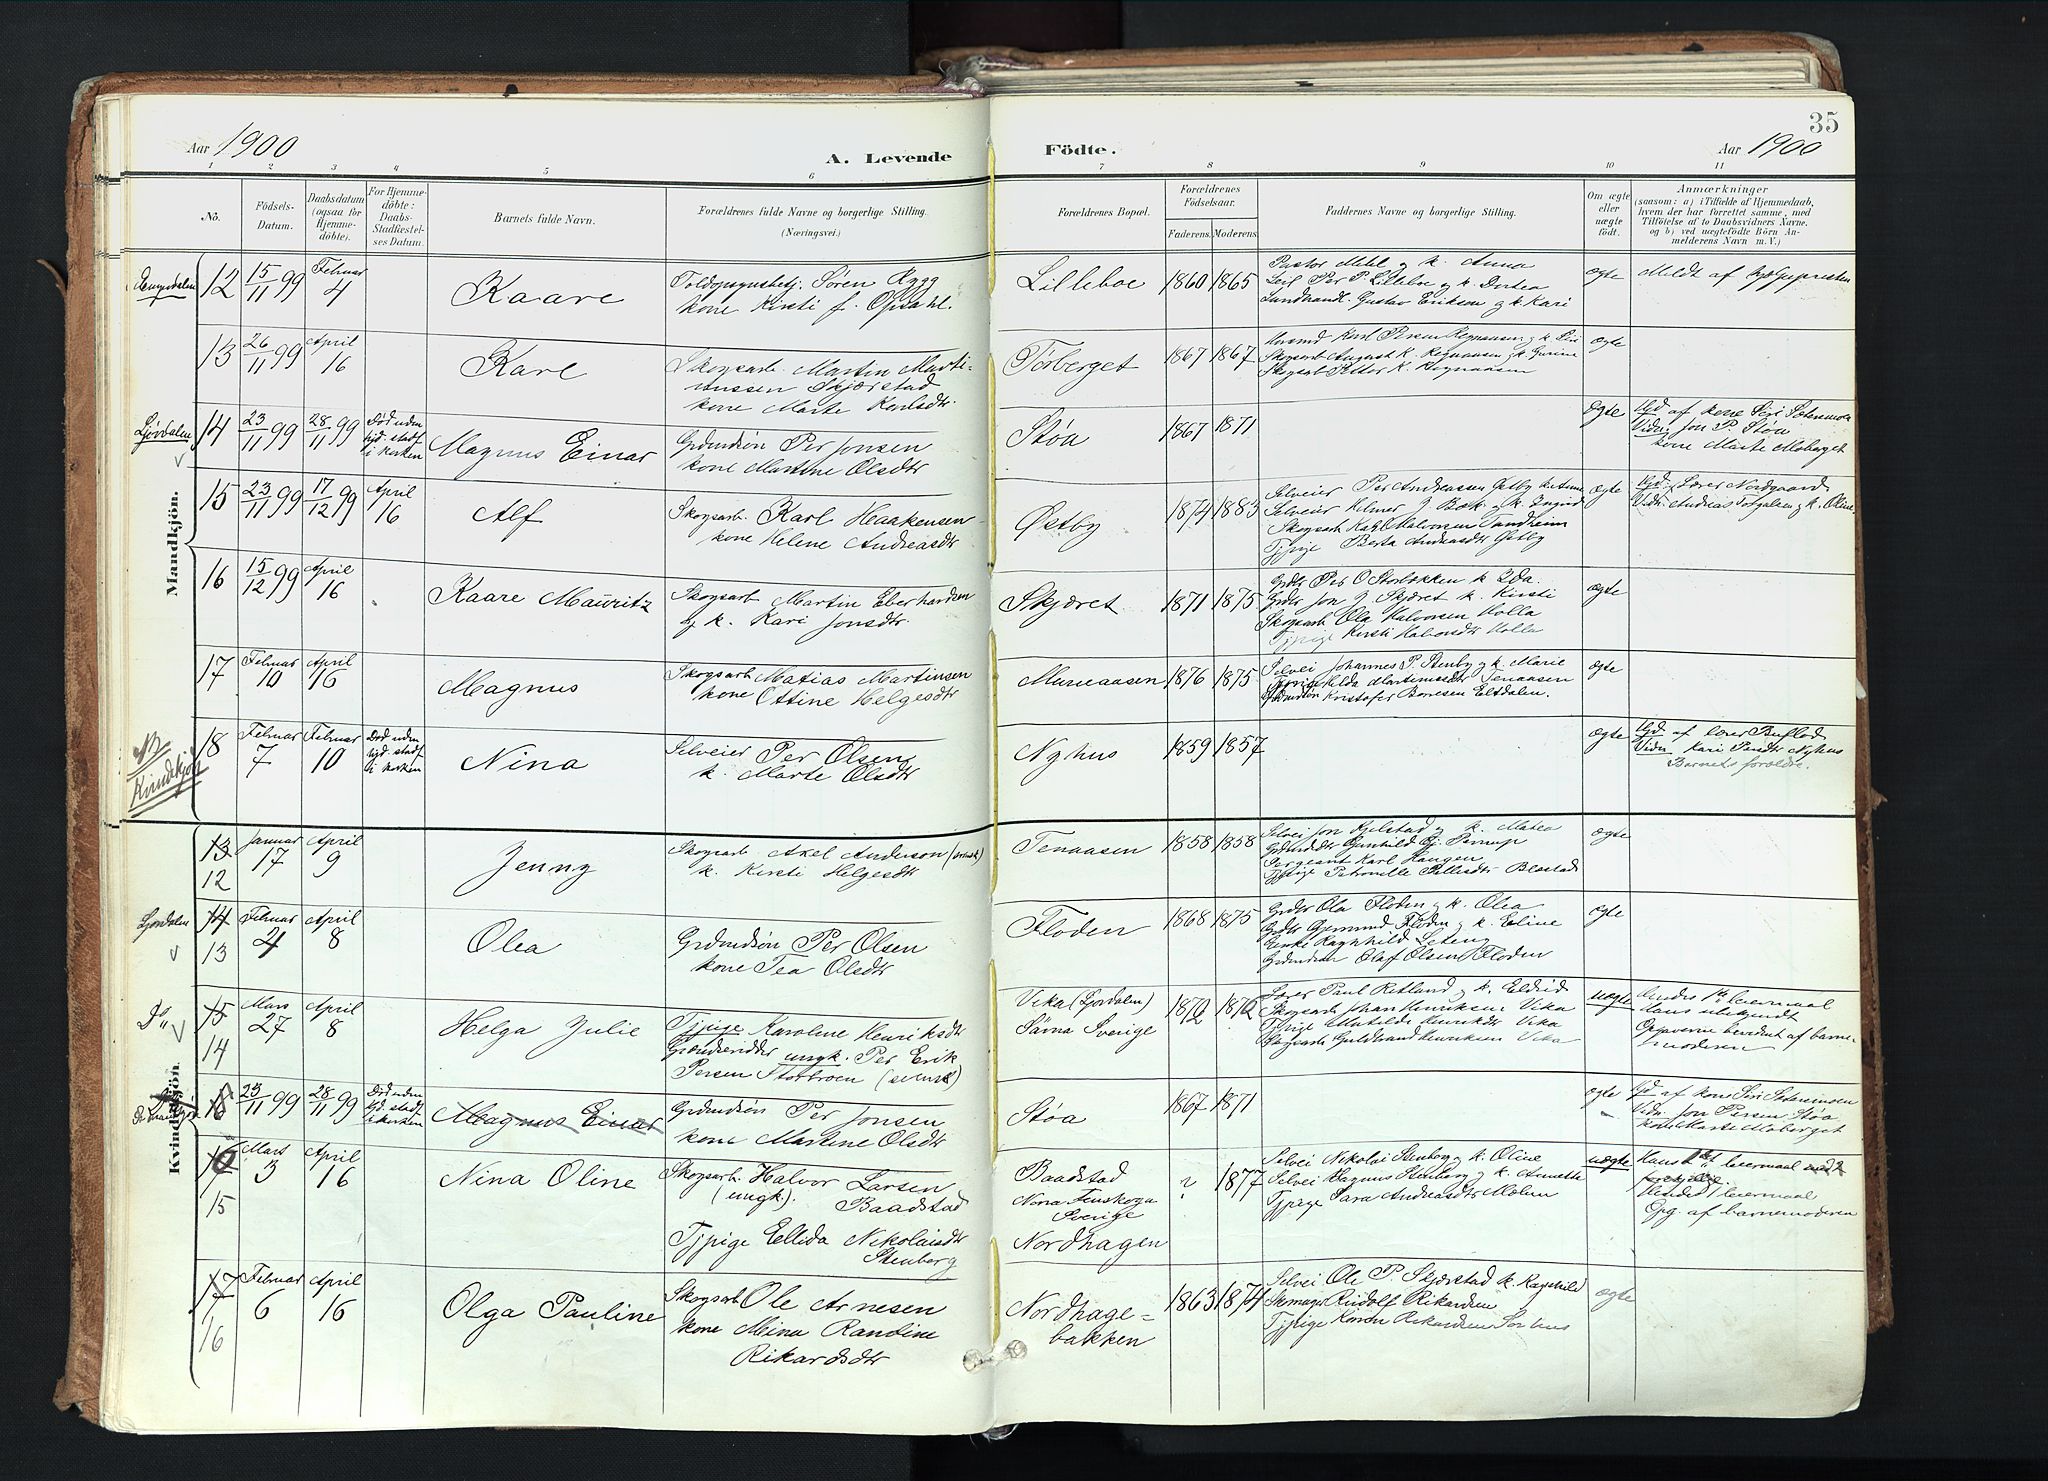 35
Aar 1900
A. Levende Födte.
Aar 1900
1 2 3 4 5 6 7 8 9 10 11
No.
Födsels-Datum.
Daabsdatum (ogsaa for Hjemmedöbte).
For Hjemmedöbte: Daabs-Stadfæstelses Datum.
Barnets fulde Navn.
Forældrenes fulde Navne og borgerlige Stilling.
(Næringsvei.)
Forældrenes Bopæl.
Forældrenes Födselsaar.
Faderens. Moderens.
Faddernes Navne og borgerlige Stilling.
Om ægte eller uægte födt.
Anmærkninger
(saasom: a) i Tilfælde af Hjemmedaab,
hvem der har forrettet samme, med
Tilföielse af to Daabsvidners Navne,
og b) ved uægtefödte Börn Anmelderens Navn m. V.)
Mandkjön.
12 15/11 99 Februar 4 Kaare
Søren Rygg
kone Kirsti f. Opsahl.
Lilleboe 1860 1865
Pastor Mehl og k. Anna
Per P. Lilleboe og k. Dortea
Landhandl. Gustav Eriksen og k. Kari
ægte Meldt af hjælpepresten
13 26/11 99 April 16 Karl
Skogsarb. Martin Martinussen Skjærstad
kone Marte Karlsdtr
Törberget 1867 1867
ægte
Ljørdalen
14 23/11 99 28/11 99 Död uden hjd. stadf. i kirken
Magnus Einar
Grdmdsön Per Jonsen
kone Martine Olsdtr
Støa 1867 1871
ægte
Hjd af kone Siri Sætermoen
Vidn. Jon P. Støa
kone Marte Moberget
15 23/11 99 17/12 99 April 16 Alf
Skogsarb. Karl Haakensen
kone Helene Andreasdtr
Østby 1874 1883
Selveier Per Andreassen Østby
Selveier Helmer J. Bæk og k. Ingrid
Skogsarb Karl Halvorsen Tandheim
Tjpige Berta Andreasdtr Østby
ægte
Hjd. Lærer Nordgaard
16 15/12 99 April 16 Kaare Mauritz
Skogsarb Martin Eberhardsen
og k. Kari Jonsdtr.
Skjæret 1871 1875
Grdbr Per O Storbækken k. Eda.
Grdbr Jon J. Skjæret k. Kirsti
Skogsarb Ola Halvorsen Holla
Tjpige Kirsti Halvorsdtr Holla
ægte
17 Februar 10 April 16 Magnus
Skogsarb Matias Martinsen
kone Ottine Helgesdtr
Mureaasen 1876 1875
Selvei Johannes P. Stenby og k. Marie
Grdmdsön Kristofer Borresen Eltdalen.
ægte
NB Kvindekjön
18 Februar 7 Februar 10 Död uden hjd. stadf. i kirken
Nina
Selveier Per Olsen
k. Marte Olsdtr
Nyhus 1859 1857
ægte
Hjd. af lærer Buflod
Vidn. Kari Persdtr Nyhus
Barnets forældre.
Kvindkjön
13 12 Januar 17 April 9 Jenny
Skogsarb Axel Anderson (svensk)
k. Kirsti Helgesdtr
Tenaasen 1858 1858
Selvei Jon Kjelstad og k. Matea
Sergeant Karl Haugen
ægte
Ljördalen
14 13 Februar 24 April 8 Olea
Grdmdsön Per Olsen
kone Tea Olsdtr
Floden 1868 1875
Grdbr Ola Floden og k. Olea
Grdbr Gjermund Floden og k. Eline
Enke Ragnhild Leteng
Grdmdsön Olaf Olsen Floden
ægte
Do
15 14 Mars 27 April 8 Helga Julie
Tjpige Karoline Henriksdtr
Grændseridder ungk. Per Erik
Persen Storbroen (svensk)
Vika (Ljördalen)
Särna Sverige
1872 1876
Lærer Paul Retland og k. Eldrid
Skogsarb Johan Henriksen Vika
Tjpige Matilde Henriksdtr Vika
Skogsarb Guldbrand Henriksen Vika
uægte
Hendes 1ste leiermaal
Hans ubekjendt
Opgaverne besørget af barnemoderen
16 23/11 99 28/11 99 Död uden hjd. stadf. i kirken
Magnus Einar
Grdmdsön Per Jonsen
kone Martine Olsdtr
Støa 1867 1871
ægte
Hjd af kone Siri Sætermoen
Vidn. Jon Persen Støa
kone Marte Moberget
15 Mars 3 April 16 Nina Oline
Skogsarb. Halvor Larsen
(ungk.) Baadstad
Tjpige Ellida Nikolaisdtr
Stenberg
Baadstad
Norra Finskoga
Sverige
Nordhagen
? 1877
Selvei Nikolai Stenberg og k. Oline
Selvei Magnus Stenberg og k. Annette
Tjpige Sara Andreasdtr Molun
uægte
Hendes 1 leiermaal
Opg. af barnemoderen
17 16 Februar 6 April 16 Olga Pauline
Skogsarb Ole Arnesen
kone Mina Randine
Rikardsdtr
Nordhagebakken
1863 1874
Selvei Ole P. Skjærstad k. Ragnhild
Skomager Rudolf Rikardsen
Tjpige Karen Rikardsen
ægte